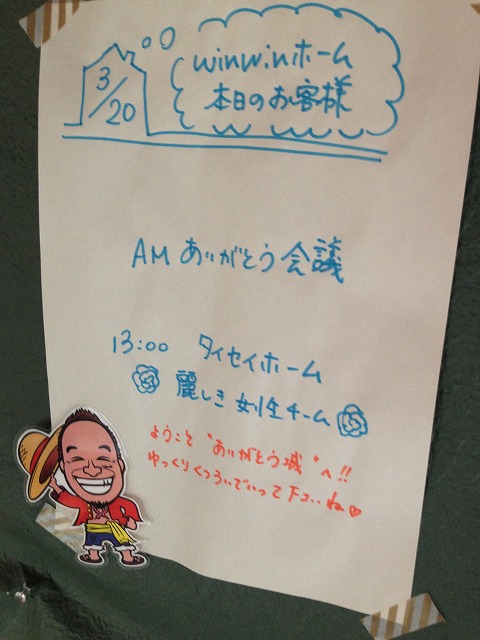 3/20
winwinホーム
本日のお客様
AM ありがとう会議
13:00 タイセイホーム
麗しき女性チーム
ようこそ"ありがとう城"へ!!
ゆっくりくつろいでいって下さいね♡